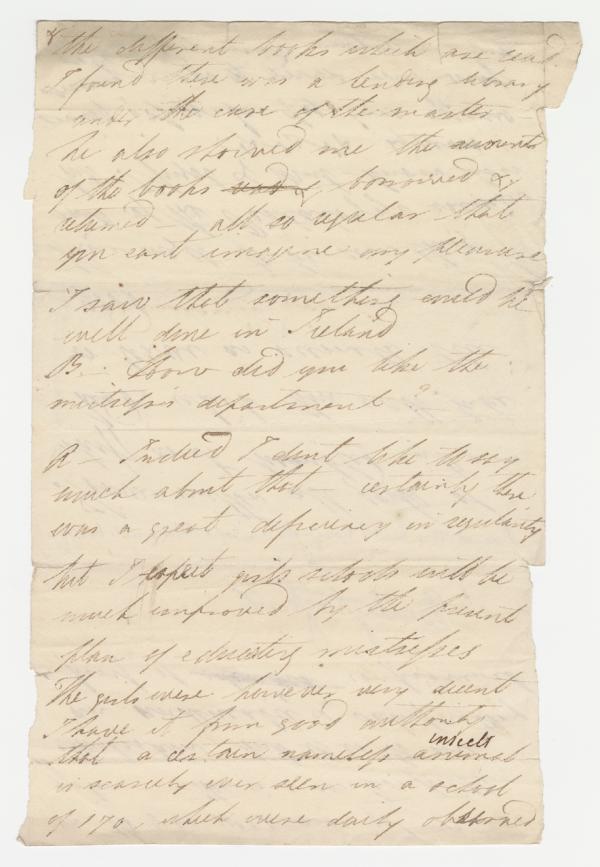 & the different books which are read.
I found there was a lending library
under the care of the master -
he also showed me the accounts
of the books read & borrowed &
returned - all so regular that
you cant imagine my pleasure
I saw that something could be
well done in Ireland
B. - How did you like the
mistress's department?
R - Indeed I dont like to say
much about that - certainly there
was a great deficiency in regularity
but I expect girls schools will be
much improved by the present
plan of educating mistresses
The girls were however very decent
I have it from good authority
insects
that a certain nameless animal
is scarcely ever seen in a school
of 170, which were daily observed